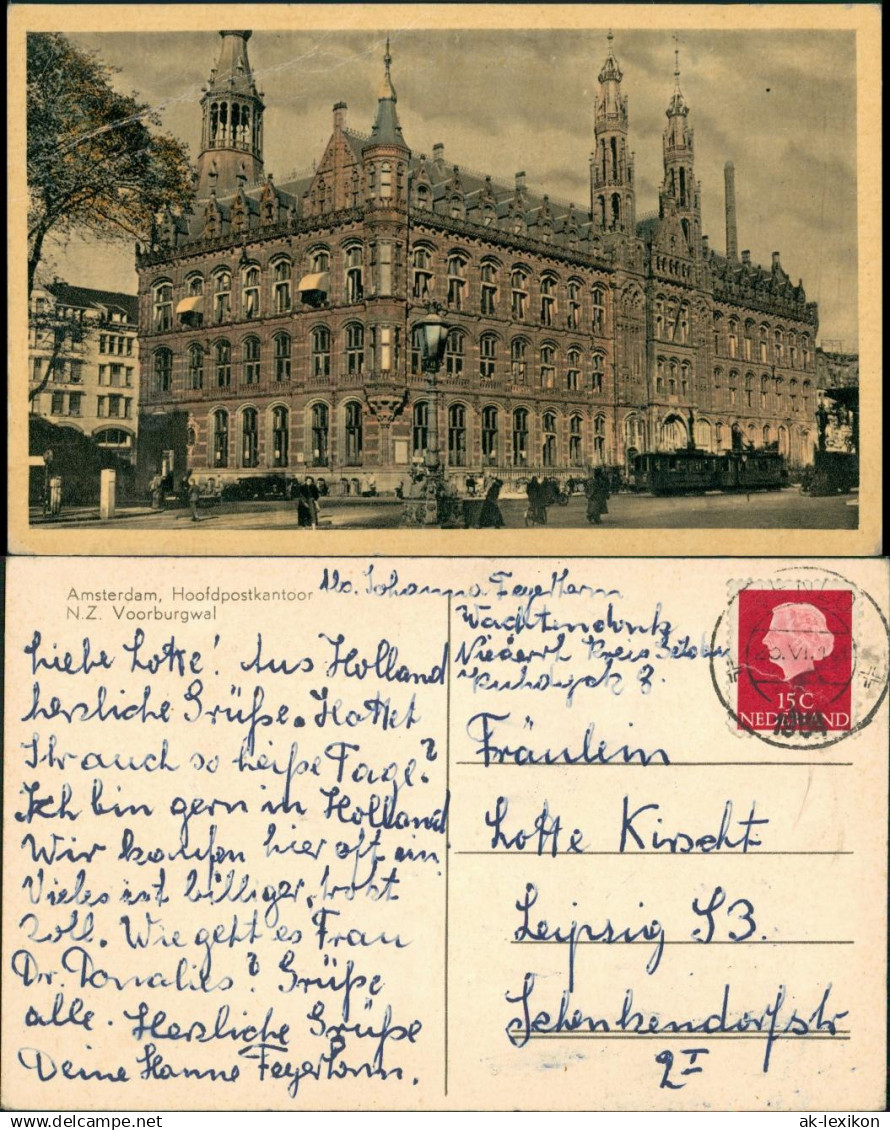 Amsterdam, Hoofdpostkantoor
N.Z. Voorburgwal
Liebe Lotte! Aus Holland
herzliche Grüße. Hattet
Ihr auch so heiße Tage?
Ich bin gern in Holland
Wir kaufen hier oft ein.
Vieles ist billiger, trotz
Zoll. Wie geht es Frau
Dr. Donalies? Grüße
alle. Herzliche Grüße
Deine Hanne Feyerhorm.
Johanna Feyerhorm
Wachtendonk
Niederrh Kreis Geldern
15C
NEDERLAND
Fräulein
Lotte Kirscht
Leipzig S3.
Schenkendorfstr
2 I
delcampe.net
ak-lexikon